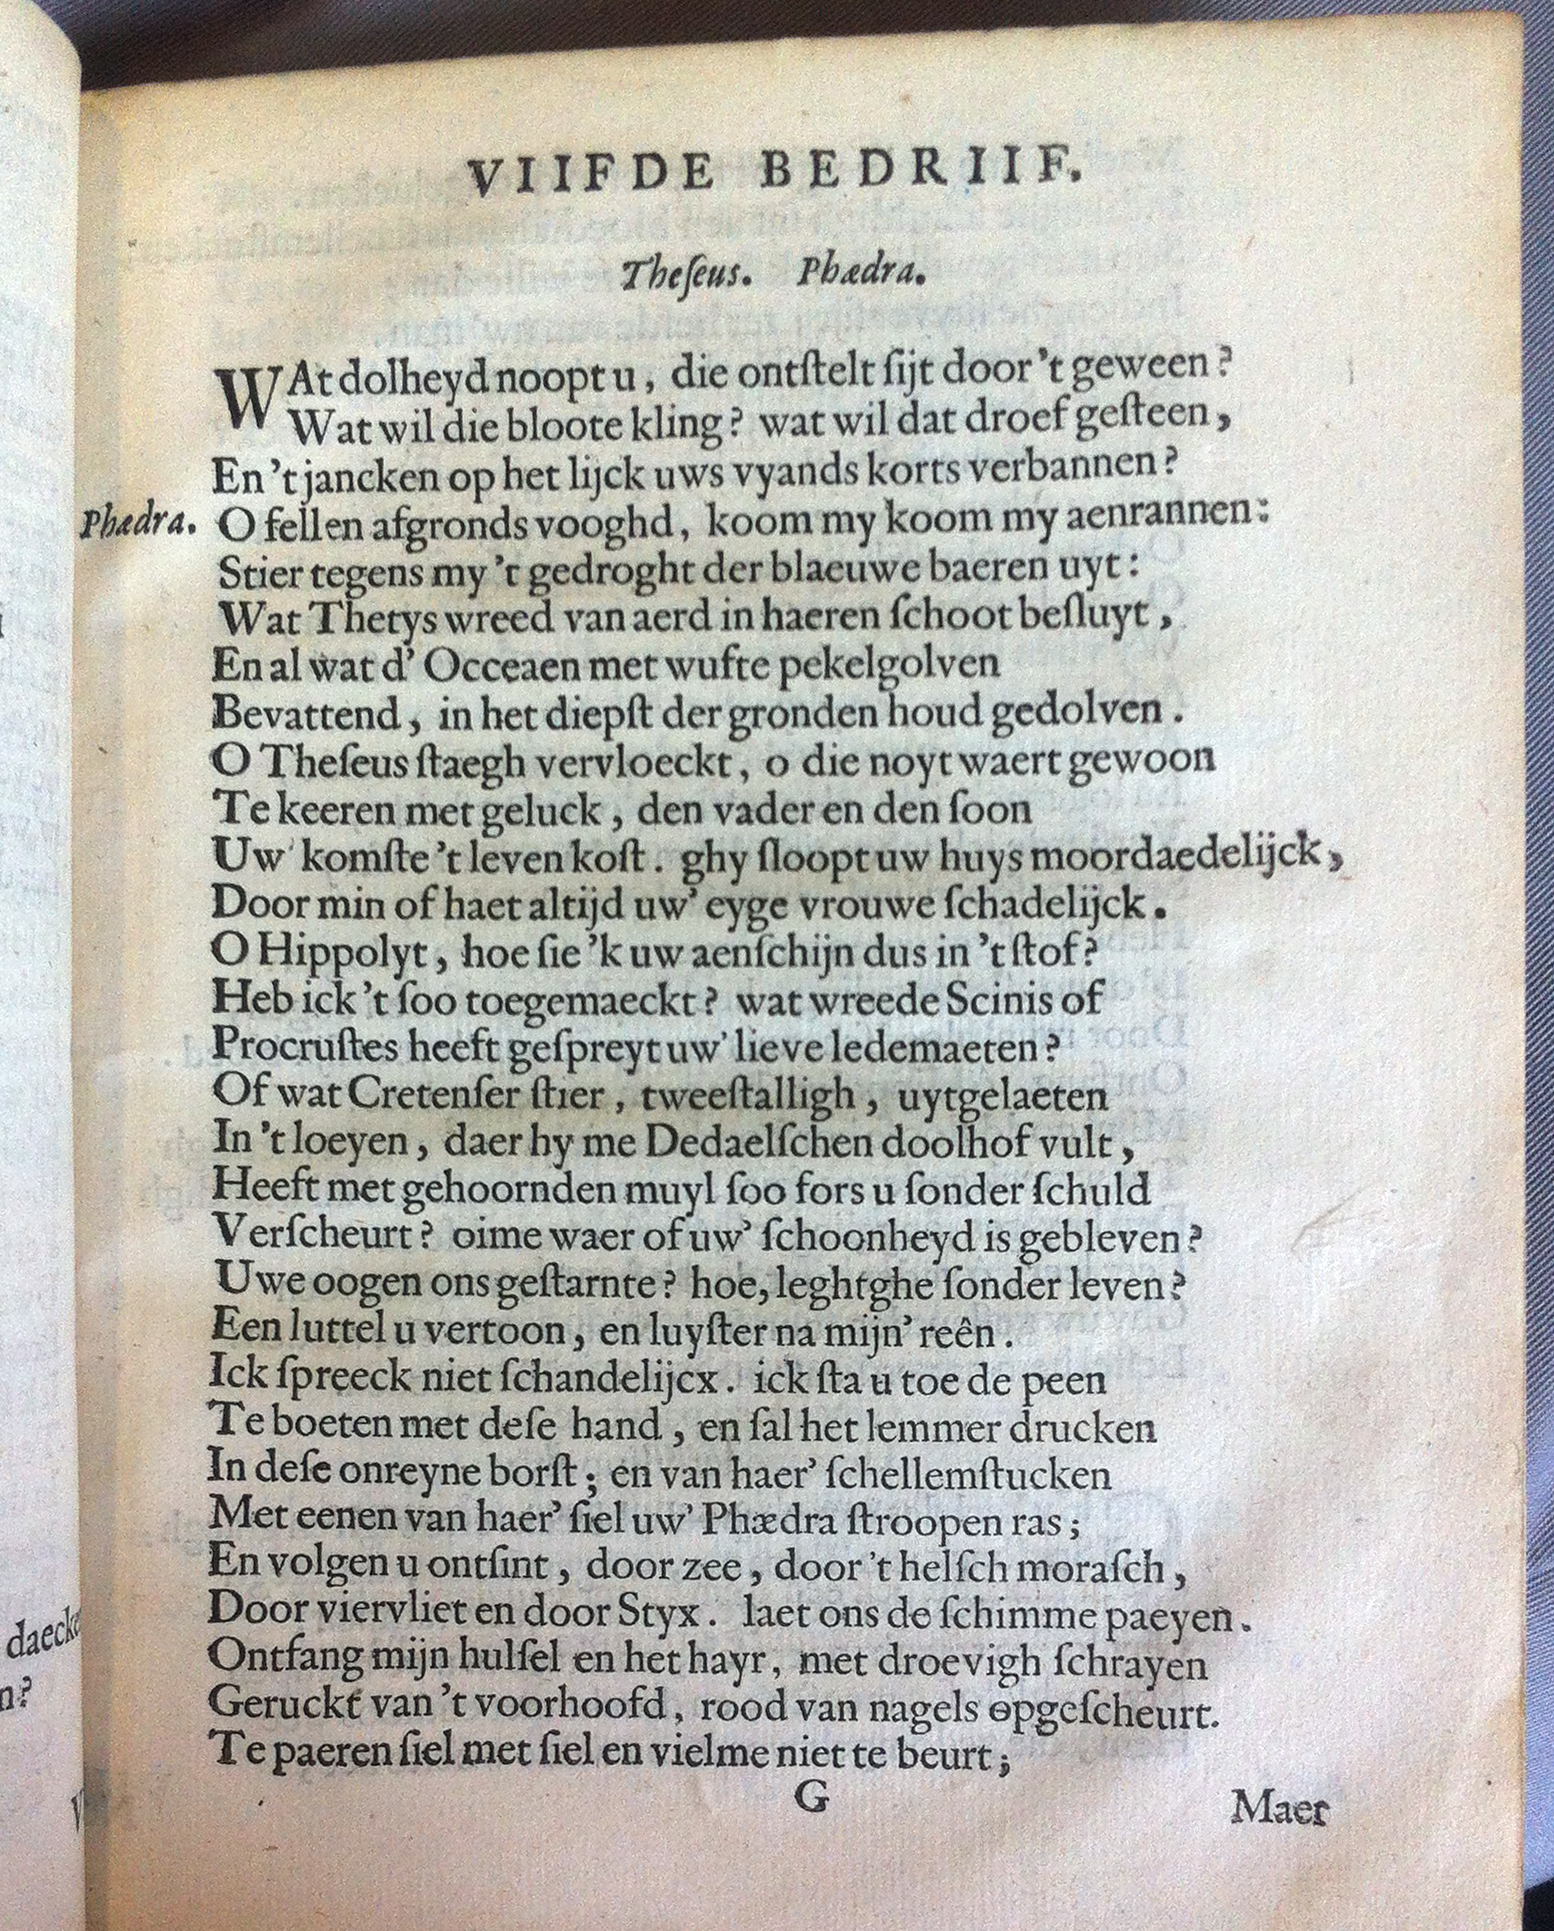 VIIFDE BEDRIIF.
Theſeus. Phædra.
WAt dolheyd noopt u, die ontſtelt ſijt door 't geween?
Wat wil die bloote kling? wat wil dat droef geſteen,
En 't jancken op het lijck uws vyands korts verbannen?
Phædra. O fellen afgronds vooghd, koom my koom my aenrannen:
Stier tegens my 't gedroght der blaeuwe baeren uyt:
Wat Thetys wreed van aerd in haeren ſchoot beſluyt,
En al wat d' Occeaen met wufte pekelgolven
Bevattend, in het diepſt der gronden houd gedolven.
O Theſeus ſtaegh vervloeckt, o die noyt waert gewoon
Te keeren met geluck, den vader en den ſoon
Uw' komſte 't leven koſt. ghy ſloopt uw huys moordaedelijck,
Door min of haet altijd uw' eyge vrouwe ſchadelijck.
O Hippolyt, hoe ſie 'k uw aenſchijn dus in 't ſtof?
Heb ick 't ſoo toegemaeckt? wat wreede Scinis of
Procruſtes heeft geſpreyt uw' lieve ledemaeten?
Of wat Cretenſer ſtier, tweeſtalligh, uytgelaeten
In 't loeyen, daer hy me Dedaelſchen doolhof vult,
Heeft met gehoornden muyl ſoo fors u ſonder ſchuld
Verſcheurt? oime waer of uw' ſchoonheyd is gebleven?
Uwe oogen ons geſtarnte? hoe, leghtghe ſonder leven?
Een luttel u vertoon, en luyſter na mijn' reên.
Ick ſpreeck niet ſchandelijcx. ick ſta u toe de peen
Te boeten met deſe hand, en ſal het lemmer drucken
In deſe onreyne borſt; en van haer' ſchellemſtucken
Met eenen van haer' ſiel uw' Phædra ſtroopen ras;
En volgen u ontſint, door zee, door 't helſch moraſch,
Door viervliet en door Styx. laet ons de ſchimme paeyen.
Ontfang mijn hulſel en het hayr, met droevigh ſchrayen
Geruckt van 't voorhoofd, rood van nagels opgeſcheurt.
Te paeren ſiel met ſiel en viel me niet te beurt;
G
Maer
daecke
n?